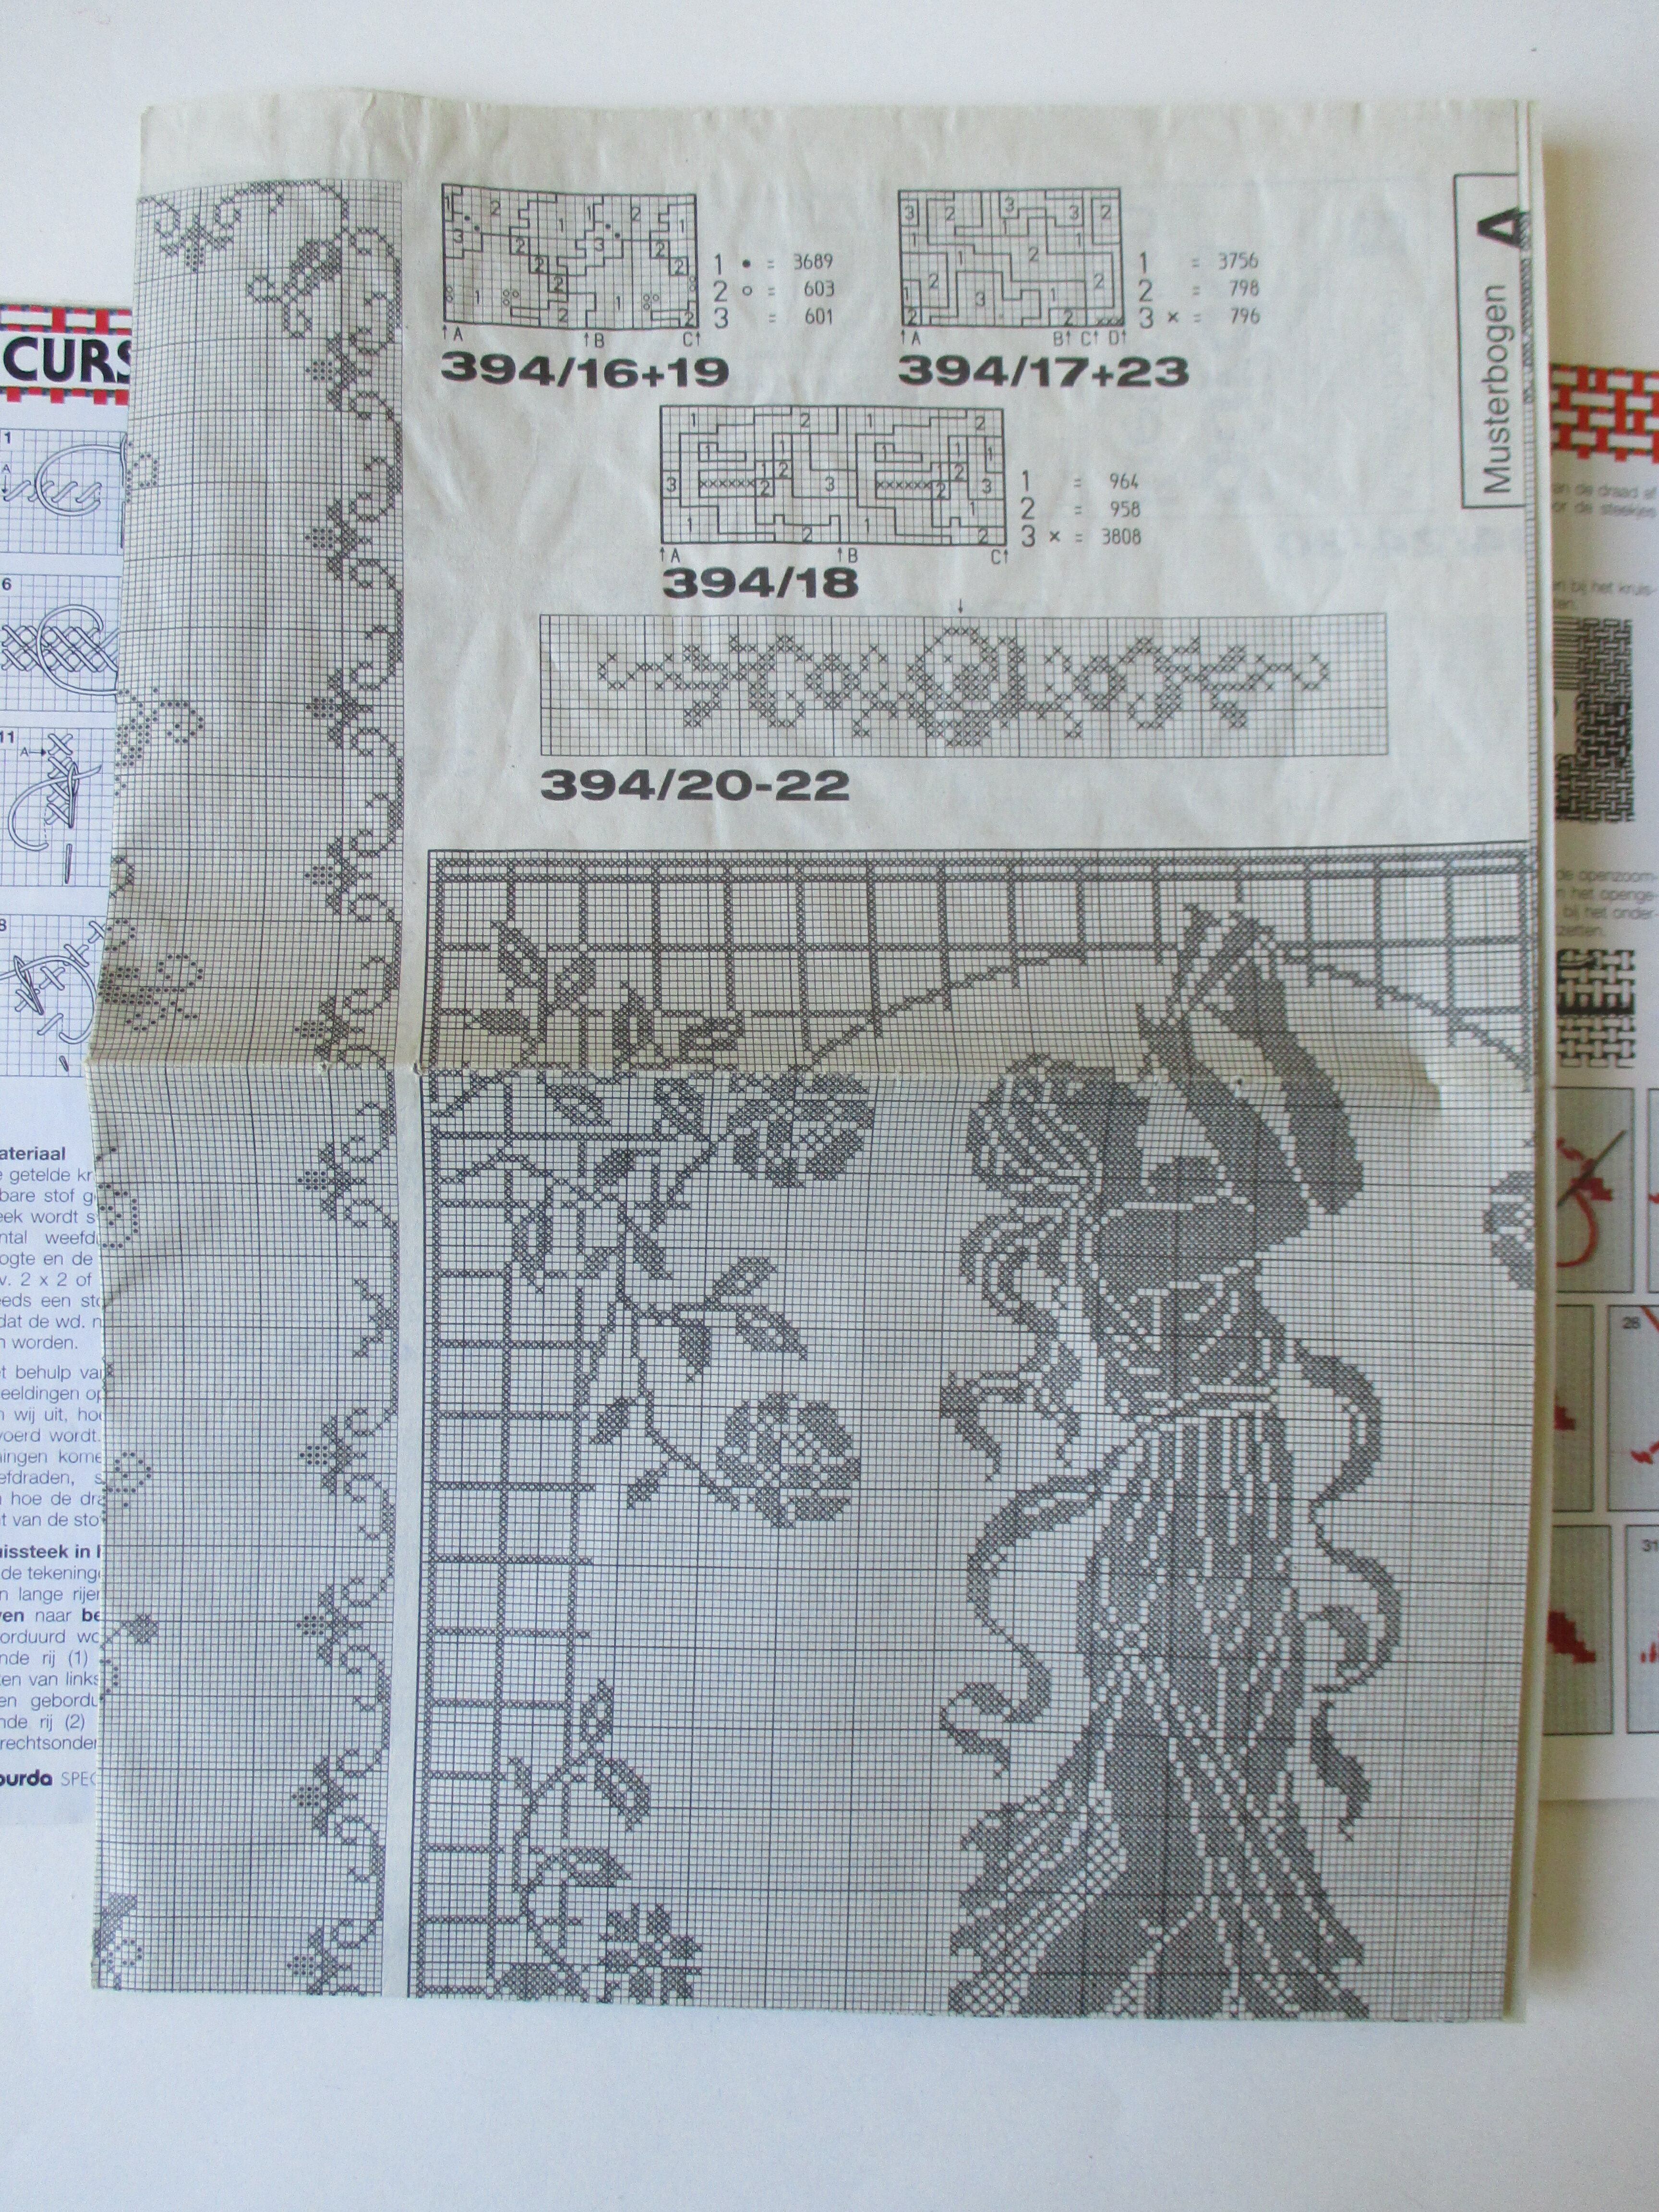 CURS
1
A
6
11
A
8
ateriaal
e getelde kr
bare stof g
eek wordt s
ntal weefd
ogte en de
v. 2 x 2 of
eds een sto
dat de wd. n
n worden.
t behulp va
eeldingen op
n wij uit, hoe
voerd wordt.
ningen kome
efdraden, s
n hoe de dra
t van de sto
uissteek in h
de tekening
n lange rijen
ven naar be
orduurd wo
nde rij (1)
ken van links
en gebordu
nde rij (2)
rechtsonder
burda SPEC
1 • = 3689
2 ○ = 603
3 = 601
A B C
394/16+19
1 = 3756
2 = 798
3 × = 796
A B C D
394/17+23
1 = 964
2 = 958
3 × = 3808
A B C
394/18
394/20-22
Musterbogen A
an de draad af
or de steekjes
n bij het kruis-
ten.
de openzoom-
n het openge-
bij het onder-
zetten.
28
31